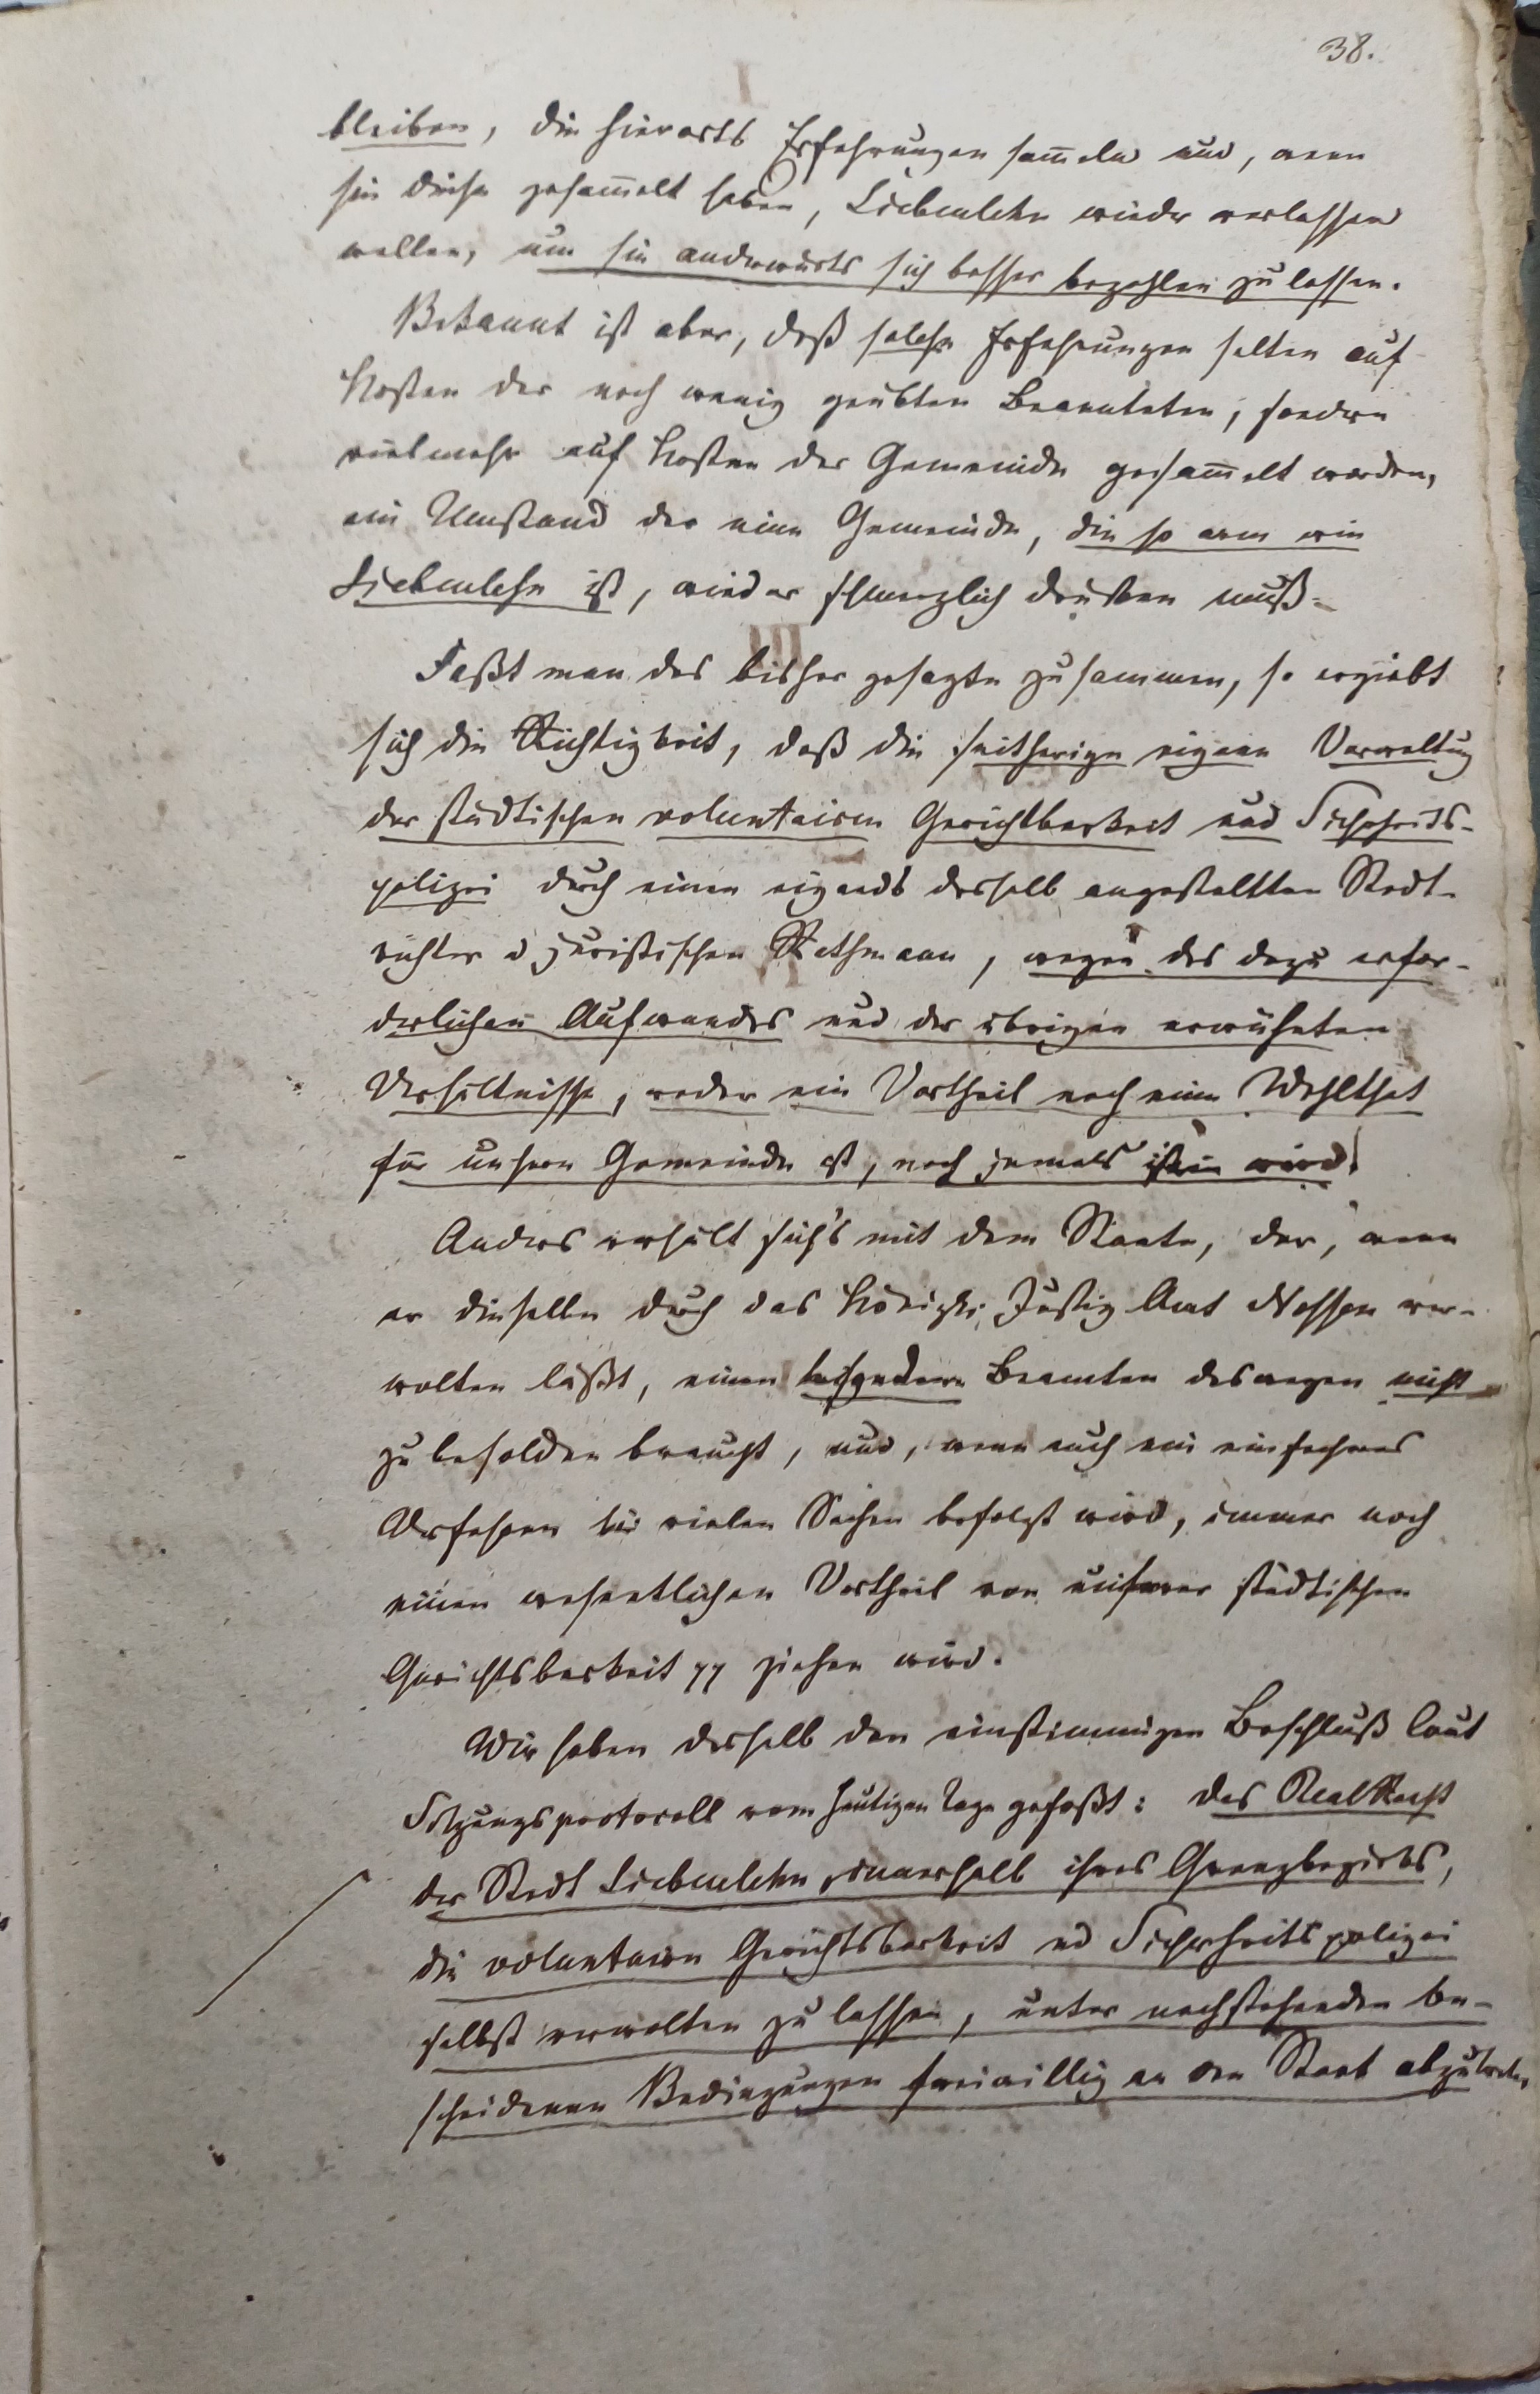 38.
bleiben, die hierorts Erfahrungen sam̄eln und, wenn
sie diese gesam̄elt haben, Siebenlehn wieder verlassen
wollen, um sie anderwärts sich besser bezahlen zu lassen.
Bekannt ist aber, daß solche Erfahrungen selten auf
Kosten der noch wenig geübten Beamteten, sondern
vielmehr auf Kosten der Gemeinde gesam̄elt werden,
ein Umstand der eine Gemeinde, die so arm wie
Siebenlehn ist, wieder schmerzlich drücken muß.
Faßt man das bisher gesagte zusammen, so ergiebt
sich die Richtigkeit, daß die seitherige eigene Verwaltung
der städtischen voluntairen Gerichtbarkeit und Sicherheits-
polizei durch einen eigends deshalb angestellten Stadt-
richter u juristischen Rathmann, wegen des dazu erfor-
derlichen Aufwandes und der übrigen erwähnten
Verhältnisse, weder ein Vortheil noch eine Wohlthat
für unsere Gemeinde ist, noch jemals sein wird!
Anders verhält sich's mit dem Staate, der, wenn
er dieselbe durch das Königl. Justiz Amt Nossen ver-
walten läßt, einen besondern Beamten deswegen nicht
zu besolden braucht, und, wenn auch ein einfacheres
Verfahren bei vielen Sachen befolgt wird, immer noch
einen wesentlichen Vortheil von unserer städtischen
Gerichtsbarkeit pp ziehen wird.
Wir haben deshalb den einstimmigen Beschluß laut
Sitzungsprotocoll vom heutigen Tage gefaßt: das Real Recht
der Stadt Siebenlehn, innerhalb ihres Grenzbezirks,
die voluntaire Gerichtsbarkeit und Sicherheitspolizei
selbst verwalten zu lassen, unter nachstehenden be-
scheidenen Bedingungen freiwillig an den Staat abzutreten,